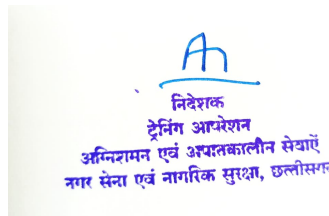 निदेशक
ट्रेनिंग आपरेशन
अग्निशमन एवं अपातकालीन सेवाऐं
नगर सेना एवं नागरिक सुरक्षा,